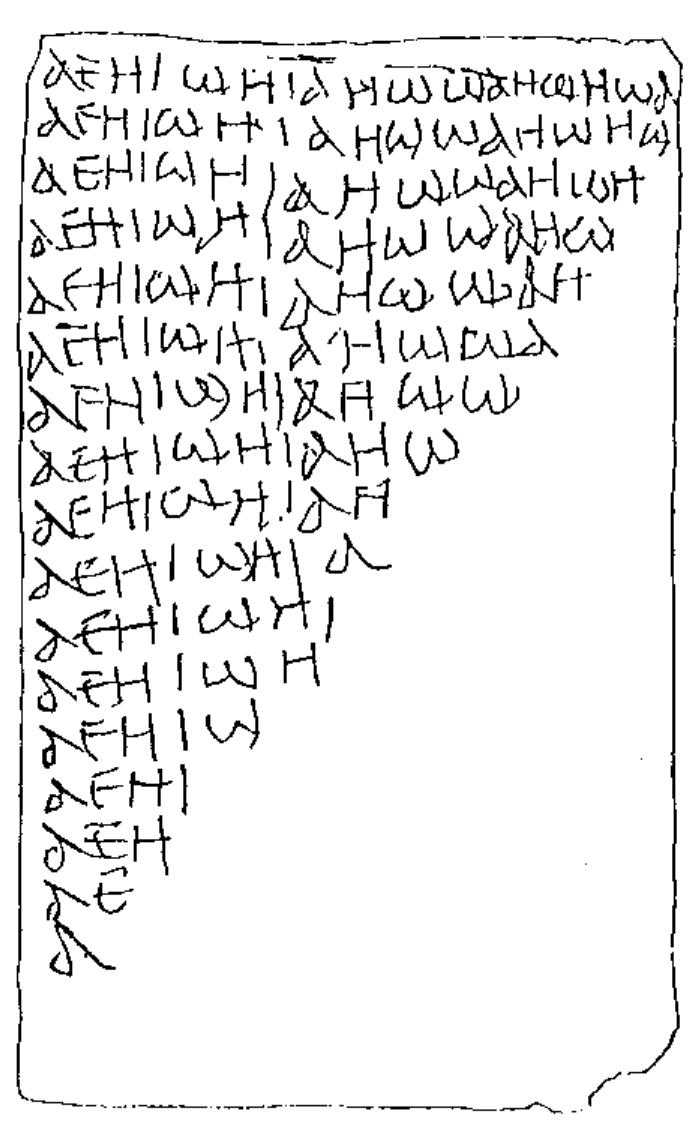 ΑΕΗΙΩΗΙΑΗΩΩΑΗΩΗΩΑ
ΑΕΗΙΩΗΙΑΗΩΩΑΗΩΗΩ
ΑΕΗΙΩΗΙΑΗΩΩΑΗΩΗ
ΑΕΗΙΩΗΙΑΗΩΩΑΗΩ
ΑΕΗΙΩΗΙΑΗΩΩΑΗ
ΑΕΗΙΩΗΙΑΗΩΩΑ
ΑΕΗΙΩΗΙΑΗΩΩ
ΑΕΗΙΩΗΙΑΗΩ
ΑΕΗΙΩΗΙΑΗ
ΑΕΗΙΩΗΙΑ
ΑΕΗΙΩΗΙ
ΑΕΗΙΩΗ
ΑΕΗΙΩ
ΑΕΗΙ
ΑΕΗ
ΑΕ
Α